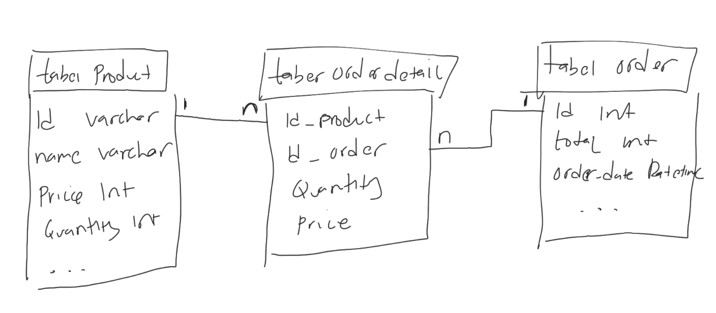 tabel Product
Id varchar
name varchar
Price Int
Quantity Int
...
1 n
taber Order detail
Id_product
Id_order
Quantity
Price
n 1
tabel order
Id Int
total int
order-date Datetime
...